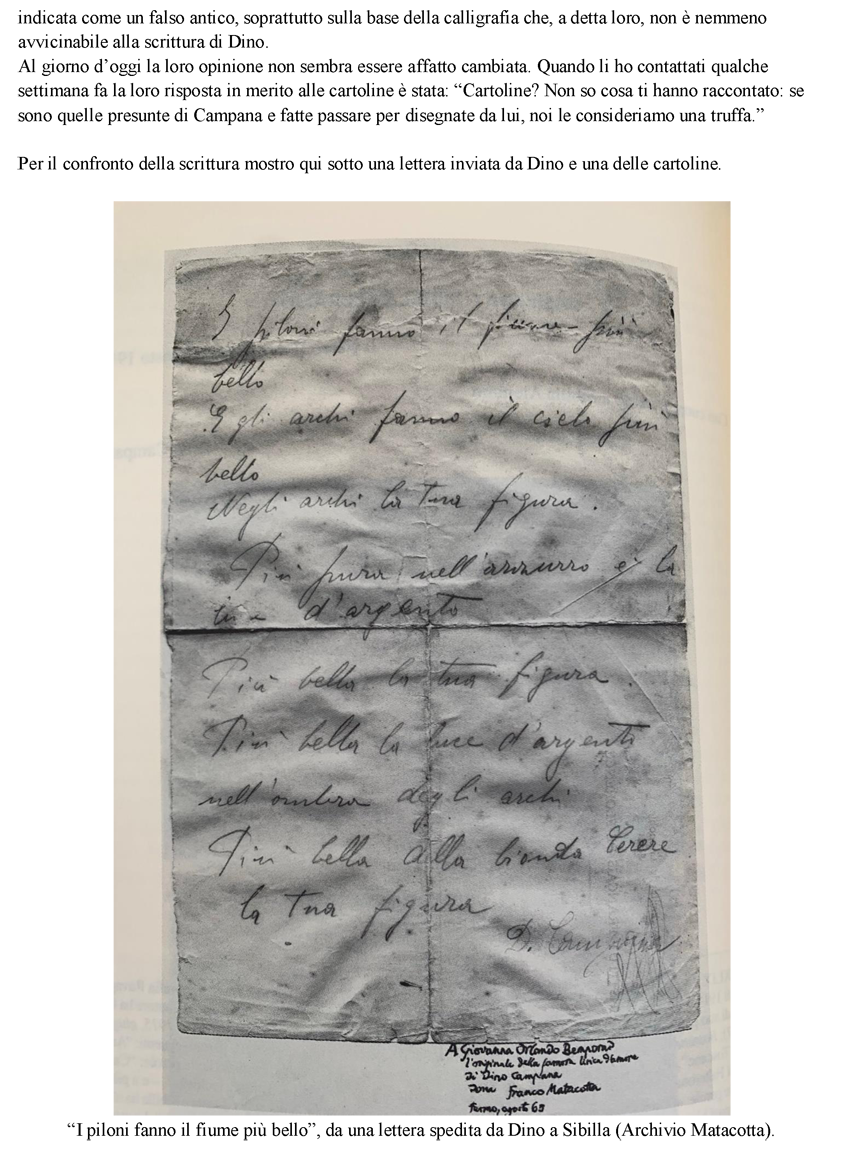 indicata come un falso antico, soprattutto sulla base della calligrafia che, a detta loro, non è nemmeno
avvicinabile alla scrittura di Dino.
Al giorno d’oggi la loro opinione non sembra essere affatto cambiata. Quando li ho contattati qualche
settimana fa la loro risposta in merito alle cartoline è stata: “Cartoline? Non so cosa ti hanno raccontato: se
sono quelle presunte di Campana e fatte passare per disegnate da lui, noi le consideriamo una truffa.”
Per il confronto della scrittura mostro qui sotto una lettera inviata da Dino e una delle cartoline.
I piloni fanno il fiume più
bello
E gli archi fanno il cielo più
bello
Negli archi la tua figura.
Più pura nell'azzurro è la
d'argento
Più bella la tua figura.
Più bella la luce d'argento
nell'ombra degli archi
Più bella della bionda Cerere
la tua figura
D. Campana
A Giovanna Orlando
l'originale della famosa lirica d'amore
di Dino Campana
dona Franco Matacotta
Fermo, agosto 65
“I piloni fanno il fiume più bello”, da una lettera spedita da Dino a Sibilla (Archivio Matacotta).